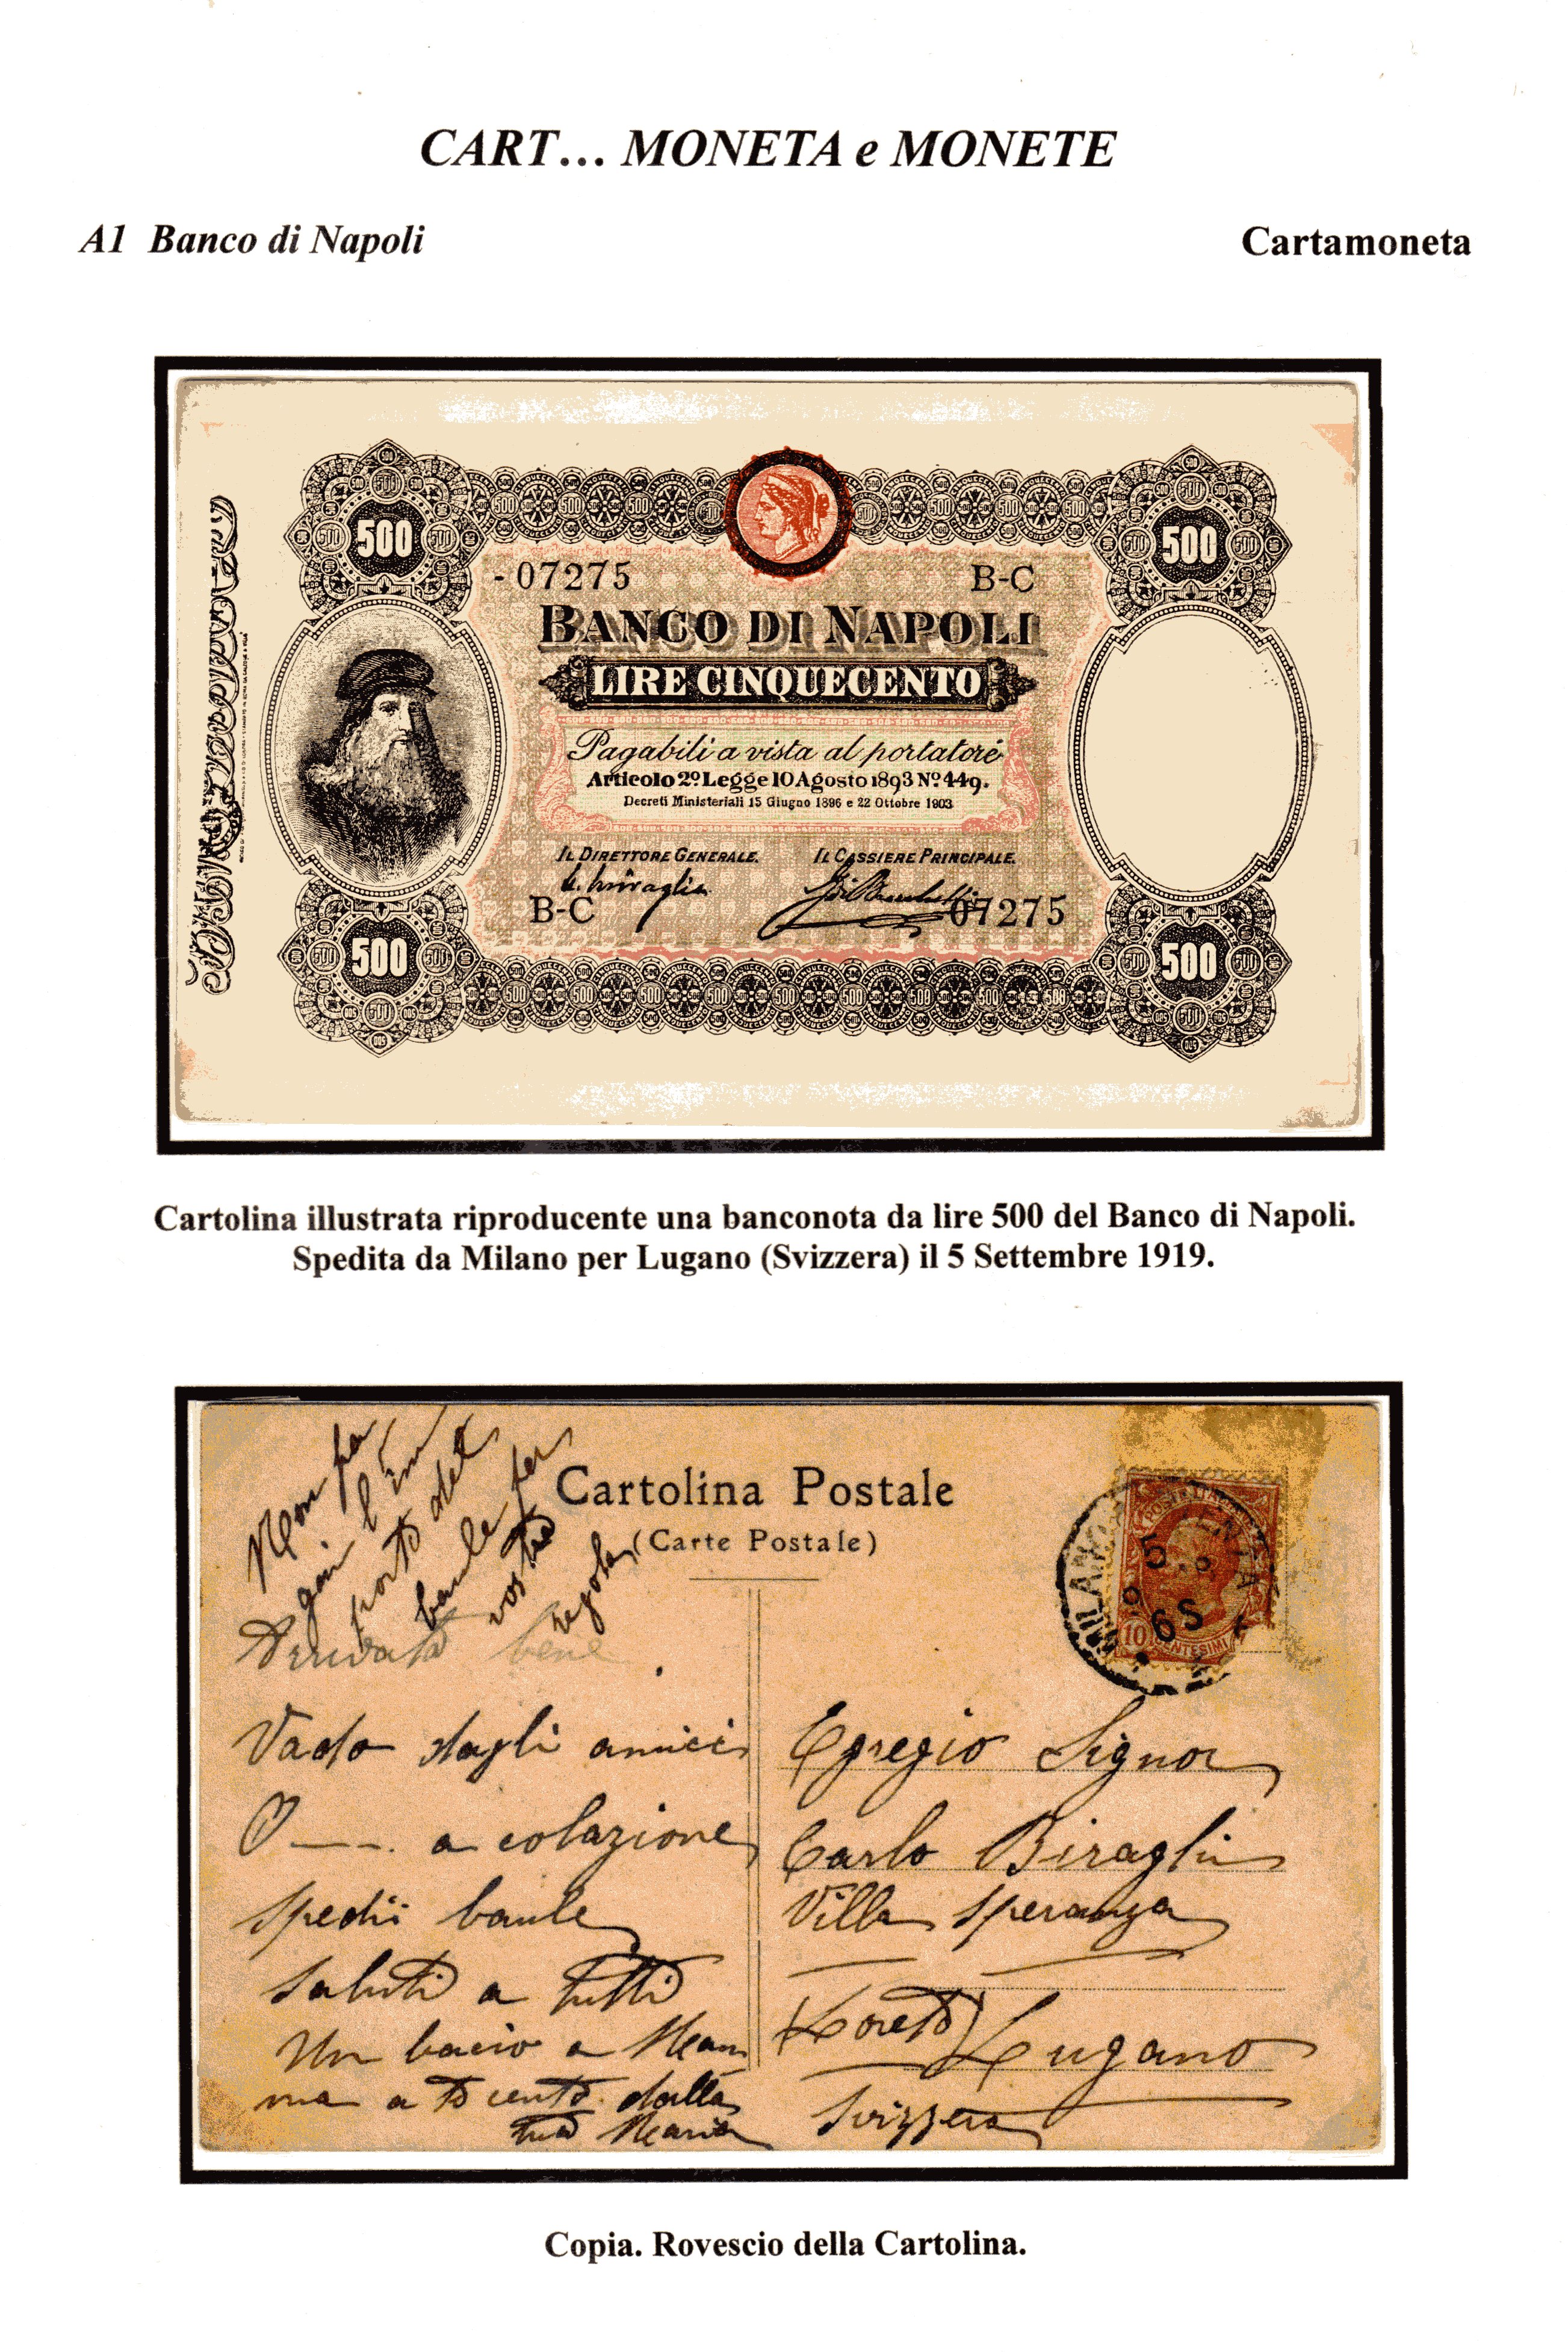 CART... MONETA e MONETE
A1 Banco di Napoli
Cartamoneta
500
500
- 07275
B-C
BANCO DI NAPOLI
LIRE CINQUECENTO
Pagabili a vista al portatore
Articolo 2º Legge 10 Agosto 1893 Nº 449.
Decreti Ministeriali 15 Giugno 1896 e 22 Ottobre 1903
IL DIRETTORE GENERALE.
IL CASSIERE PRINCIPALE.
B-C
07275
500
500
Cartolina illustrata riproducente una banconota da lire 500 del Banco di Napoli.
Spedita da Milano per Lugano (Svizzera) il 5 Settembre 1919.
Non pa
gai l'im
porto del
baule per
vostra
regola
Cartolina Postale
(Carte Postale)
MILANO
10
CENTESIMI
Arrivata bene
Vado dagli amici
O---. a colazione
Spedii baule
Saluti a tutti
Un bacio a Mam
ma a te cento dalla
tua Maria
Egregio Signor
Carlo Biraghi
Villa Speranza
(Loreto) Lugano
Svizzera
Copia. Rovescio della Cartolina.